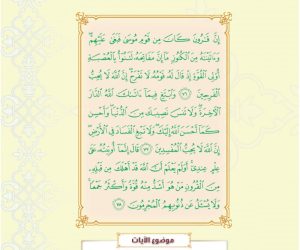 إِنَّ قَٰرُونَ كَانَ مِن قَوْمِ مُوسَىٰ فَبَغَىٰ عَلَيْهِمْ
وَءَاتَيْنَٰهُ مِنَ ٱلْكُنُوزِ مَآ إِنَّ مَفَاتِحَهُۥ لَتَنُوٓأُ بِٱلْعُصْبَةِ
أُو۟لِى ٱلْقُوَّةِ إِذْ قَالَ لَهُۥ قَوْمُهُۥ لَا تَفْرَحْ إِنَّ ٱللَّهَ لَا يُحِبُّ
ٱلْفَرِحِينَ ٧٦ وَٱبْتَغِ فِيمَآ ءَاتَىٰكَ ٱللَّهُ ٱلدَّارَ
ٱلْءَاخِرَةَ وَلَا تَنسَ نَصِيبَكَ مِنَ ٱلدُّنْيَا وَأَحْسِن
كَمَآ أَحْسَنَ ٱللَّهُ إِلَيْكَ وَلَا تَبْغِ ٱلْفَسَادَ فِى ٱلْأَرْضِ
إِنَّ ٱللَّهَ لَا يُحِبُّ ٱلْمُفْسِدِينَ ٧٧ قَالَ إِنَّمَآ أُوتِيتُهُۥ عَلَىٰ
عِلْمٍ عِندِىٓ أَوَلَمْ يَعْلَمْ أَنَّ ٱللَّهَ قَدْ أَهْلَكَ مِن قَبْلِهِۦ
مِنَ ٱلْقُرُونِ مَنْ هُوَ أَشَدُّ مِنْهُ قُوَّةً وَأَكْثَرُ جَمْعًا
وَلَا يُسْـَٔلُ عَن ذُنُوبِهِمُ ٱلْمُجْرِمُونَ ٧٨
موضوع الآيات